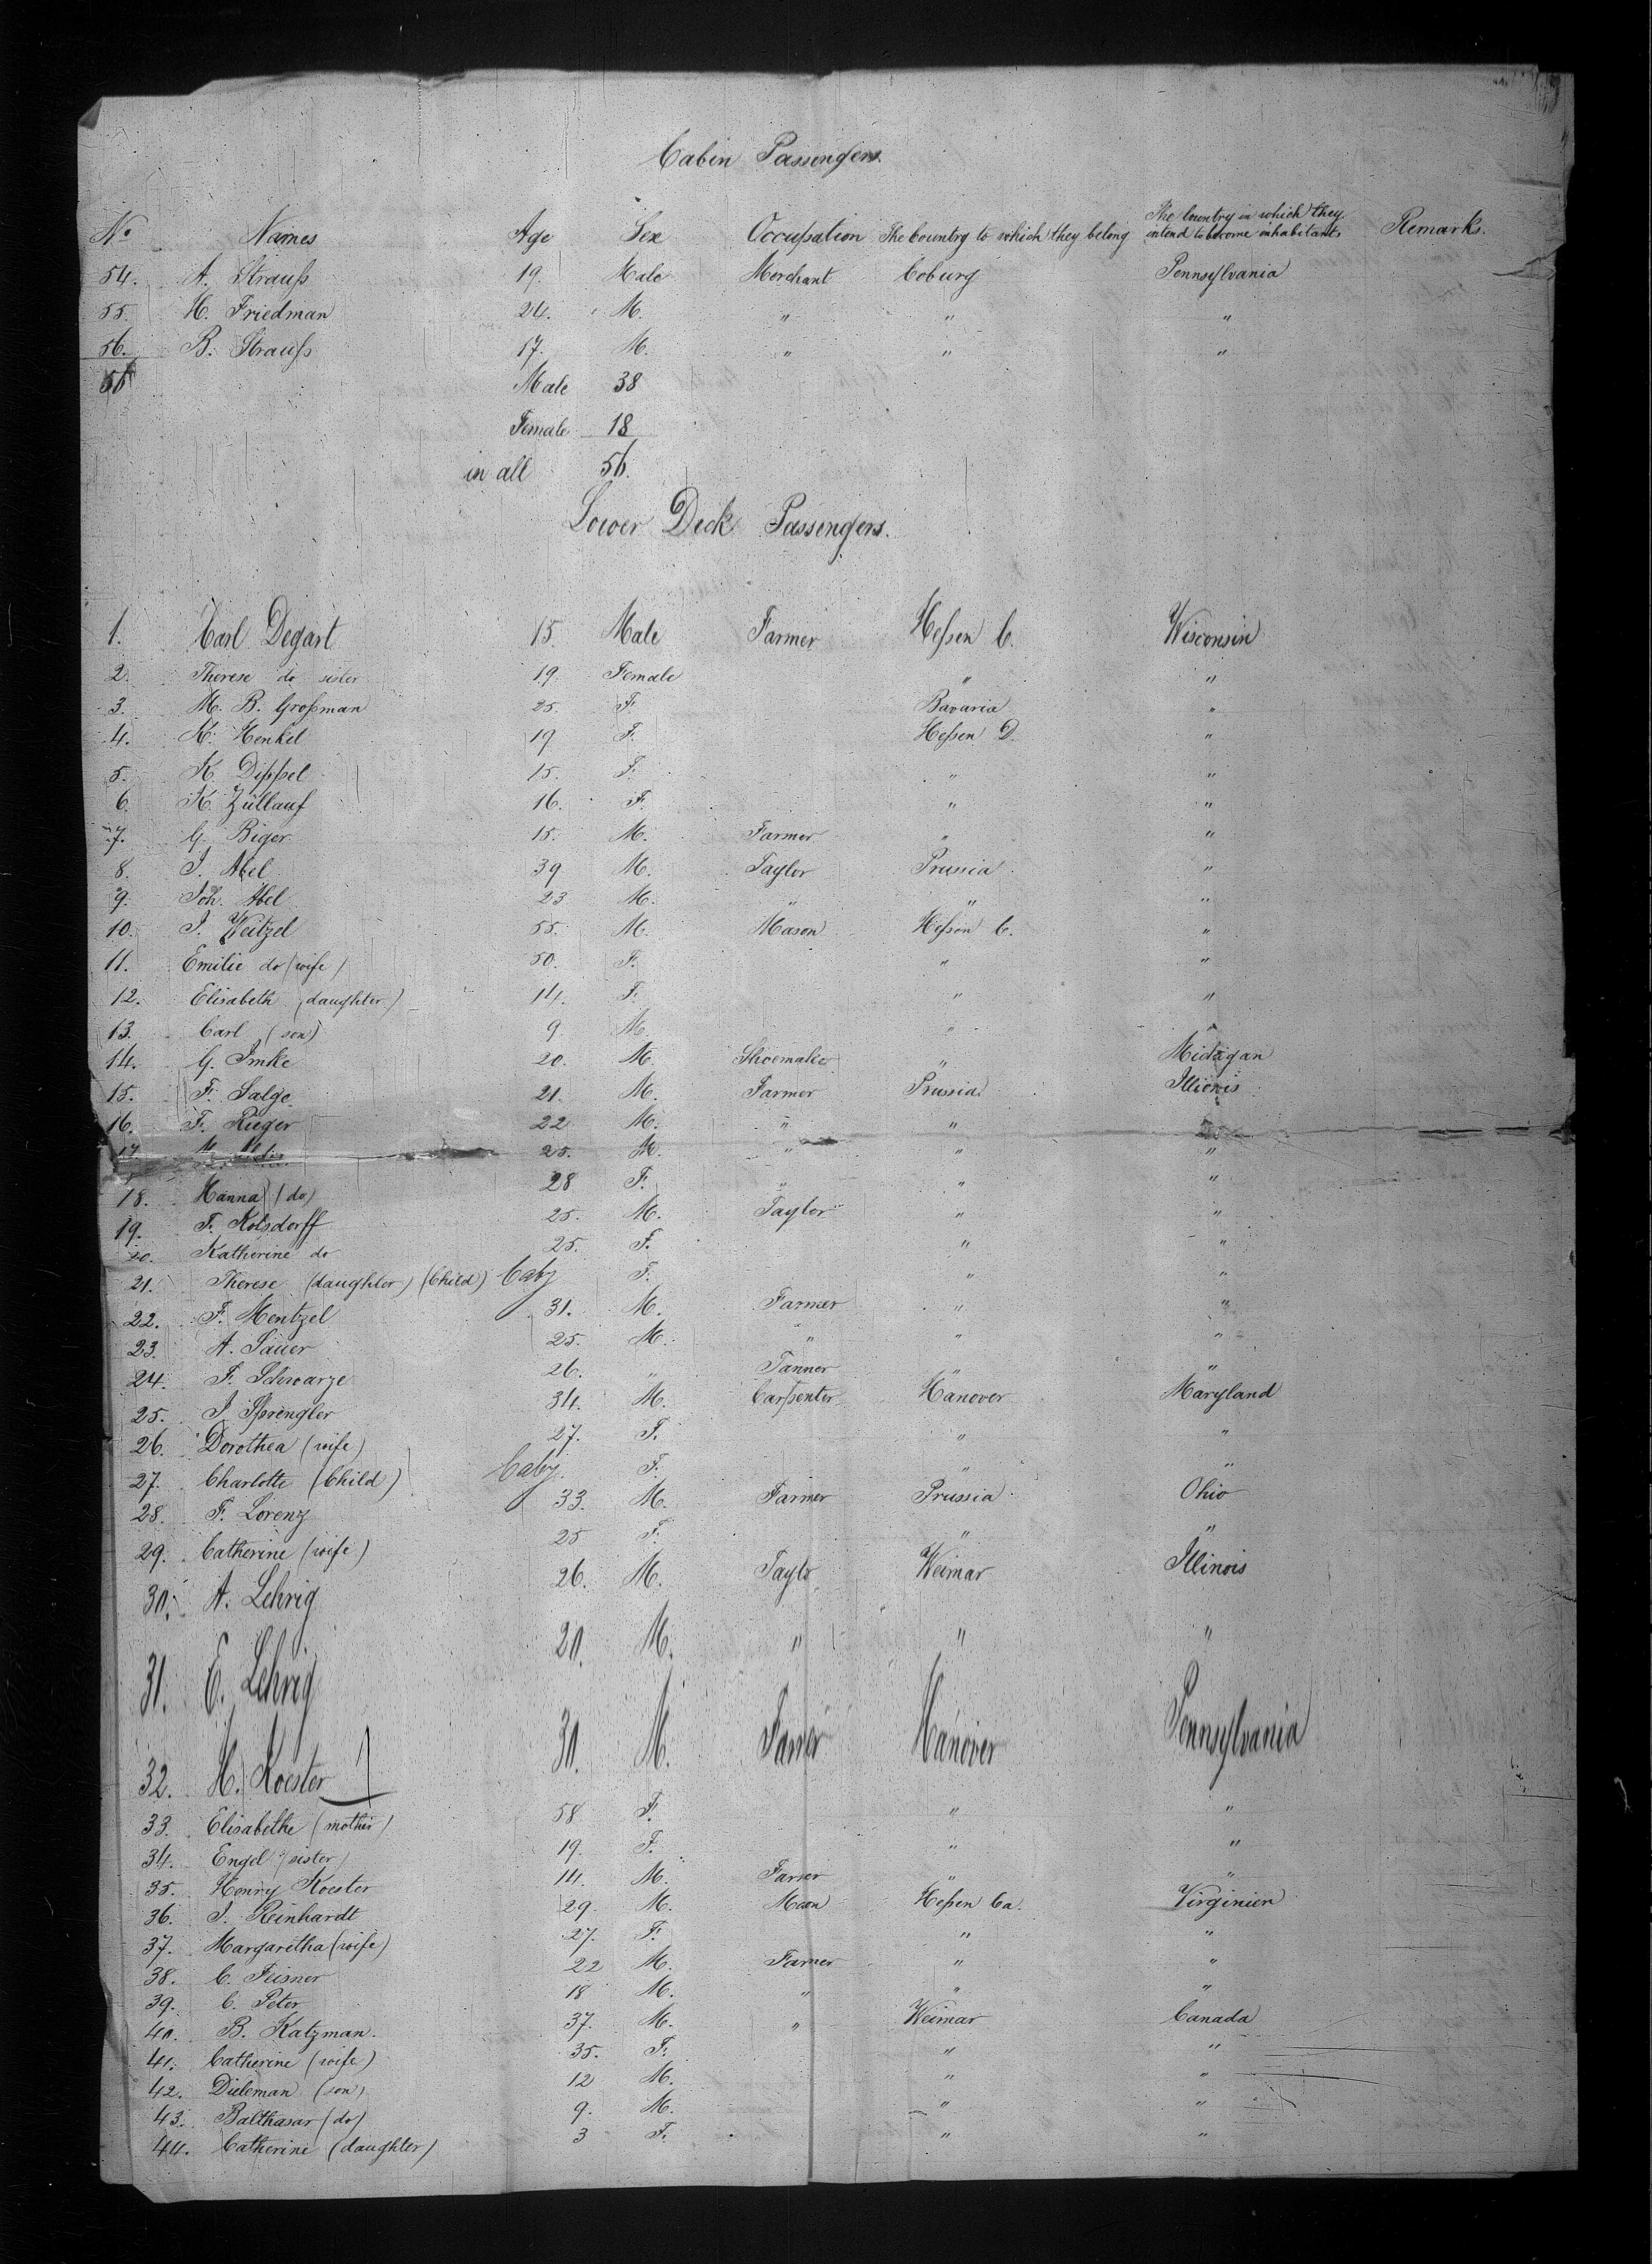 Cabin Passengers.
No Names Age Sex Occupation The Country to which they belong The Country in which they intend to become inhabitants Remarks.
54. A. Strauß 19. Male Merchant Coburg Pennsylvania
55. H. Friedman 24. M. " " "
56. B. Strauß 17. M. " " "
56 Male 38
Female 18
in all 56.
Lower Deck Passengers.
1. Carl Degart 15. Male Farmer Heßen C. Wisconsin
2. Therese do sister 19. Female " "
3. M. B. Großman 25. F. Bavaria "
4. K. Henkel 19 F. Heßen D. "
5. K. Dippel 15. F. " "
6. K. Züllauf 16. F. " "
7. G. Biger 15. M. Farmer " "
8. J. Abel 39 M. Taylor Prussia "
9. Joh. Abel 23 M. " " "
10. J. Weitzel 55. M. Mason Heßen C. "
11. Emilie do (wife) 50. F. " "
12. Elisabeth (daughter) 14. F. " "
13. Carl (son) 9. M. "
14. G. Imke 20. M. Shoemaker " Michigan
15. F. Salge 21. M. Farmer Prussia Illionis
16. F. Rieger 22 M. " " "
17. 25. M. " " "
18. Hanna (do) 28 F. " " "
19. F. Kolsdorff 25. M. Taylor " "
20. Katherine do 25. F. " "
21. Therese (daughter) (Child) Baby F. " "
22. F. Mentzel 31. M. Farmer " "
23. A. Sauer 25. M. " " "
24. F. Schwarze 26. " Tanner " "
25. J. Sprengler 34. M. Carpenter Hanover Maryland
26. Dorothea (wife) 27. F. " "
27. Charlotte (Child) Baby. F. " "
28. F. Lorenz 33. M. Farmer Prussia Ohio
29. Catherine (wife) 25 F. " "
30. A. Lehrig 26. M. Taylr Weimar Illinois
31. E. Lehrig 20. M. " " "
32. H. Koester 30. M. Farmer Hanover Pennsylvania
33. Elisabethe (mother) 58 F. " "
34. Engel (sister) 19. F. " "
35. Henry Koester 14. M. Farmer " "
36. J. Reinhardt 29. M. Mason Heßen Ca. Virginien
37. Margaretha (wife) 27. F. " "
38. C. Feisner 22 M. Farmer " "
39. C. Peter 18 M. " " "
40. B. Katzman. 37. M. " Weimar Canada
41. Catherine (wife) 35. F. " "
42. Dieleman (son) 12 M. " "
43. Balthasar (do) 9. M. " "
44. Catherine (daughter) 3 F. " "